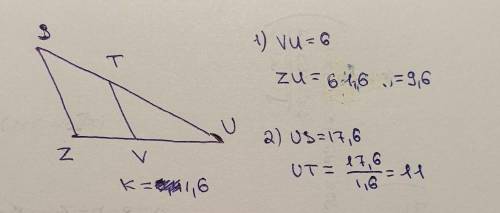 S
T
Z
V
U
K = 1,6
1) VU = 6
ZU = 6·1,6 = 9,6
2) US = 17,6
UT = 17,6/1,6 = 11